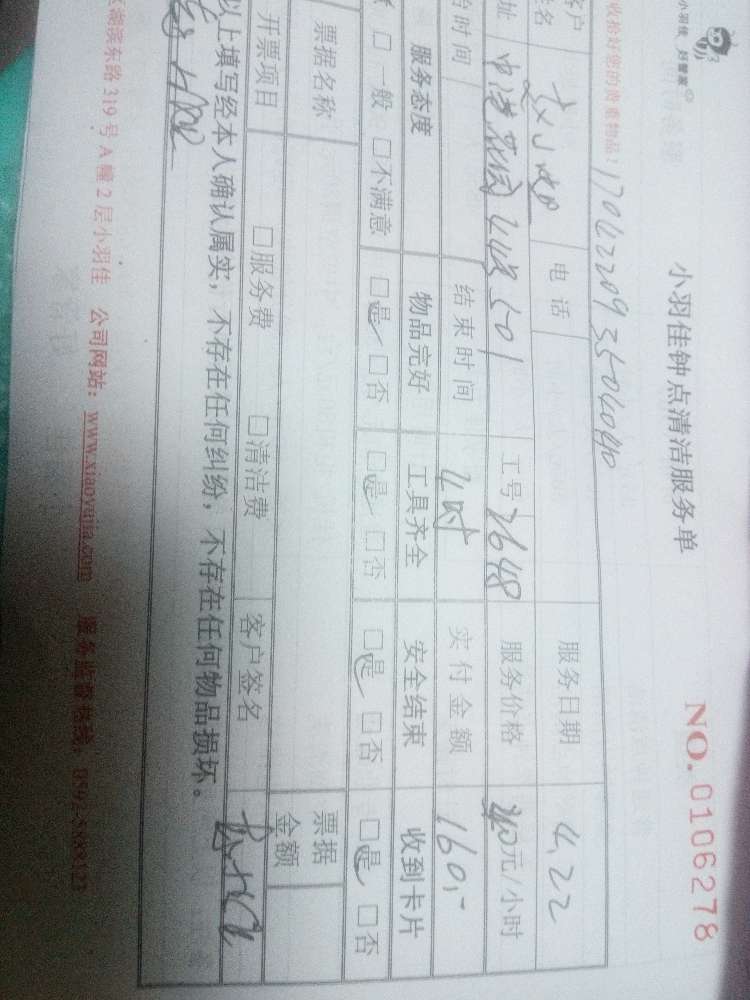 小羽佳 好管家
小羽佳钟点清洁服务单
NO. 0106278
收拾好您的贵重物品!
17042209350404110
客户
姓名
电 话
服务日期 4.22
址
501
工号 2648
服务价格 元/小时
始时间
结束时间
4时
实付金额 160.-
服务态度 物品完好 工具齐全 安全结束 收到卡片
意 □一般 □不满意 □是 □否 □是 □否 □是 □否 □是 □否
票据名称
票据
金额
开票项目 □服务费 □清洁费 客户签名
以上填写经本人确认属实,不存在任何纠纷,不存在任何物品损坏。
湖滨东路319号A幢2层小羽佳 公司网站:www.xiaoyujia.com 服务监督热线: